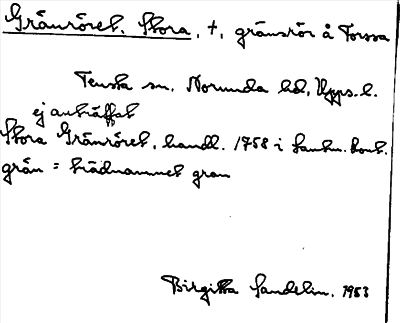 Gränröret, Stora, +, gränsrör å Forssa
Tensta sn, Norunda hd, Upps. l.
ej anträffat
Stora Gränröret, handl. 1758 i Lantm. kont.
grän = trädnamnet gran
Birgitta Sandelin. 1953